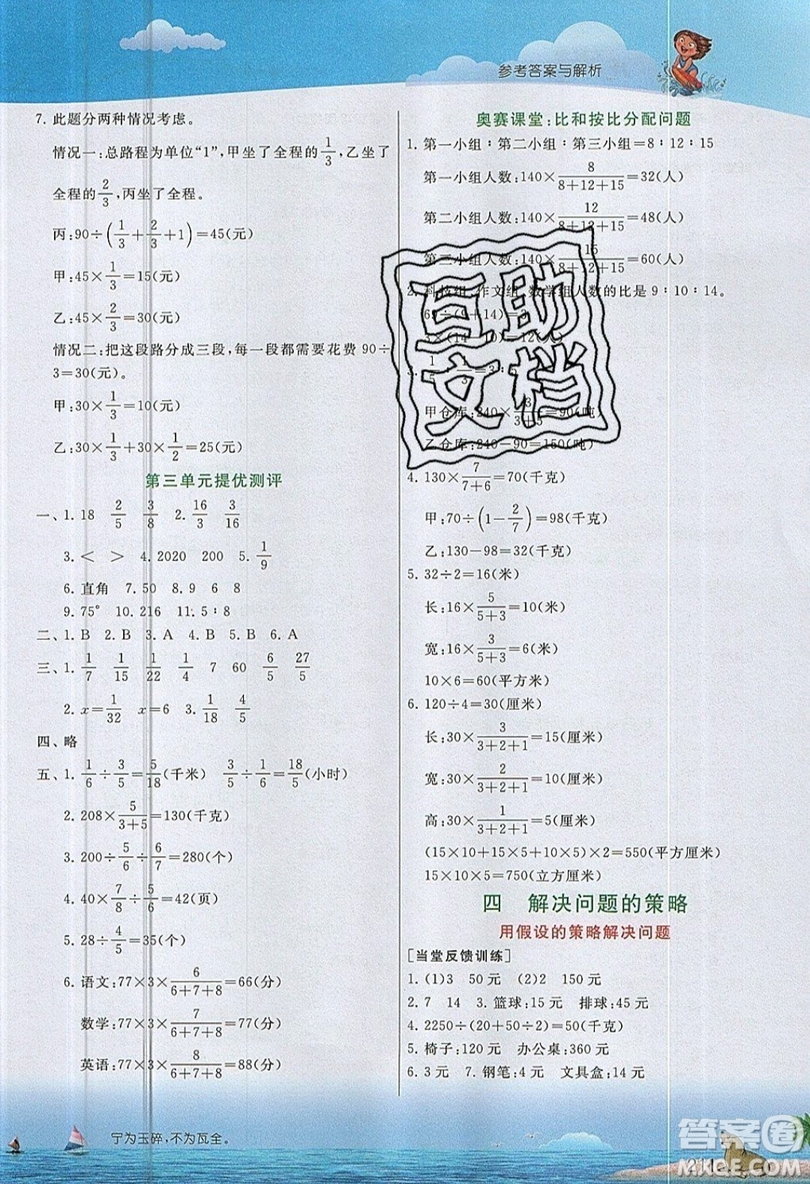 参考答案与解析
7. 此题分两种情况考虑。
情况一：总路程为单位“1”，甲坐了全程的1/3，乙坐了
全程的2/3，丙坐了全程。
丙：90÷(1/3+2/3+1)=45(元)
甲：45×1/3=15(元)
乙：45×2/3=30(元)
情况二：把这段路分成三段，每一段都需要花费 90÷
3=30(元)。
甲：30×1/3=10(元)
乙：30×1/3+30×1/2=25(元)
第三单元提优测评
一、1. 18 2/5 3/8 2. 16/3 3/16
3. < > 4. 2020 200 5. 1/9
6. 直角 7. 50 8. 9 6 8
9. 75° 10. 216 11. 5∶8
二、1. B 2. B 3. A 4. B 5. B 6. A
三、1. 1/7 1/15 2/15 1/14 7 60 6/5 27/5
2. x=1/32 x=6 3. 1/18 4/5
四、略
五、1. 1/6÷3/5=5/18(千米) 3/5÷1/6=18/5(小时)
2. 208×5/(3+5)=130(千克)
3. 200÷5/6÷6/7=280(个)
4. 40×7/8÷5/6=42(页)
5. 28÷4/5=35(个)
6. 语文：77×3×6/(6+7+8)=66(分)
数学：77×3×7/(6+7+8)=77(分)
英语：77×3×8/(6+7+8)=88(分)
奥赛课堂：比和按比分配问题
1. 第一小组∶第二小组∶第三小组=8∶12∶15
第一小组人数：140×8/(8+12+15)=32(人)
第二小组人数：140×12/(8+12+15)=48(人)
第三小组人数：140×15/(8+12+15)=60(人)
2. 科技组、作文组、数学组人数的比是 9∶10∶14。
69÷(9+14)=3
甲仓库：240×3/(3+5)=90(吨)
乙仓库：240-90=150(吨)
4. 130×7/(7+6)=70(千克)
甲：70÷(1-2/7)=98(千克)
乙：130-98=32(千克)
5. 32÷2=16(米)
长：16×5/(5+3)=10(米)
宽：16×3/(5+3)=6(米)
10×6=60(平方米)
6. 120÷4=30(厘米)
长：30×3/(3+2+1)=15(厘米)
宽：30×2/(3+2+1)=10(厘米)
高：30×1/(3+2+1)=5(厘米)
(15×10+15×5+10×5)×2=550(平方厘米)
15×10×5=750(立方厘米)
四 解决问题的策略
用假设的策略解决问题
[当堂反馈训练]
1. (1)3 50 元 (2)2 150 元
2. 7 14 3. 篮球：15 元 排球：45 元
4. 2250÷(20+50÷2)=50(千克)
5. 椅子：120 元 办公桌：360 元
6. 3 元 7. 钢笔：4 元 文具盒：14 元
互助
文档
宁为玉碎，不为瓦全。
答案圈